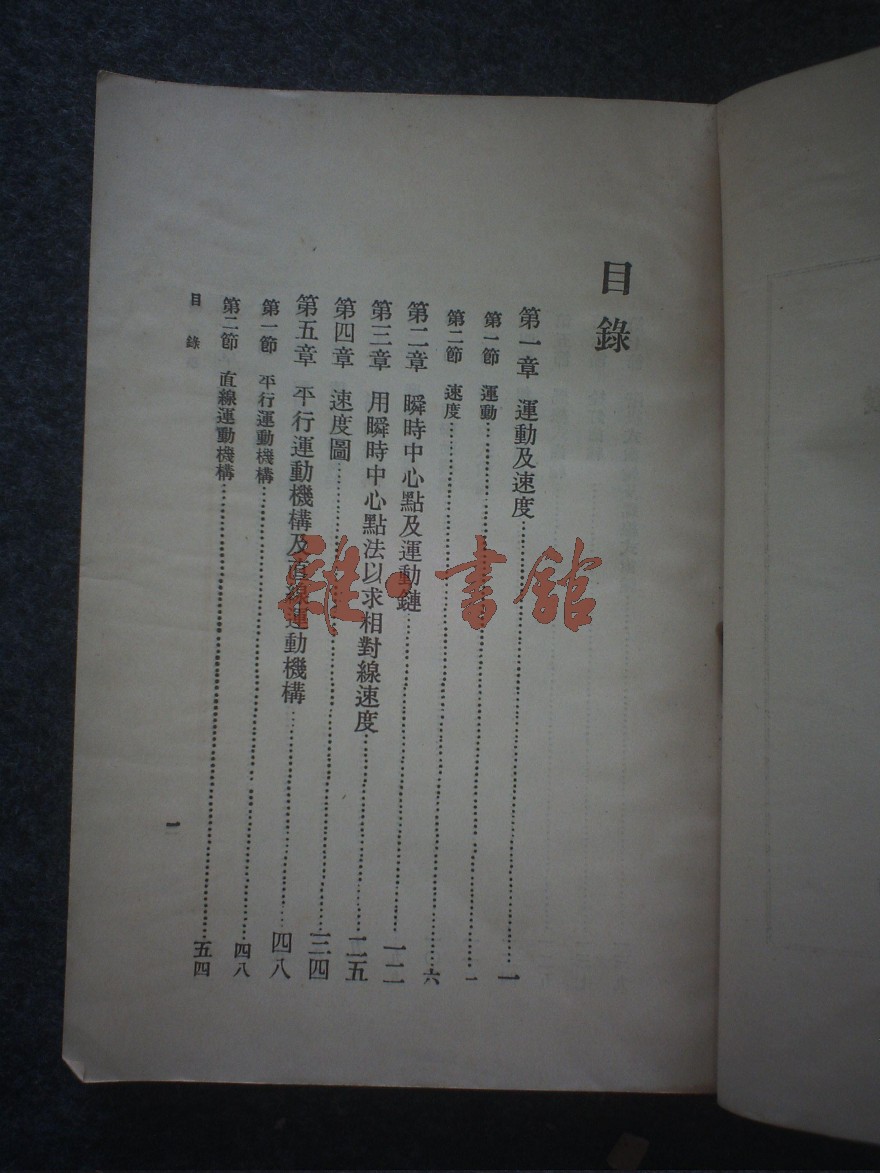 目錄
第一章 運動及速度………一
第一節 運動………一
第二節 速度………六
第二章 瞬時中心點及運動鏈………一二
第三章 用瞬時中心點法以求相對線速度………二五
第四章 速度圖………三四
第五章 平行運動機構及直線運動機構………四八
第一節 平行運動機構………四八
第二節 直線運動機構………五四
目錄
一
雜·書館